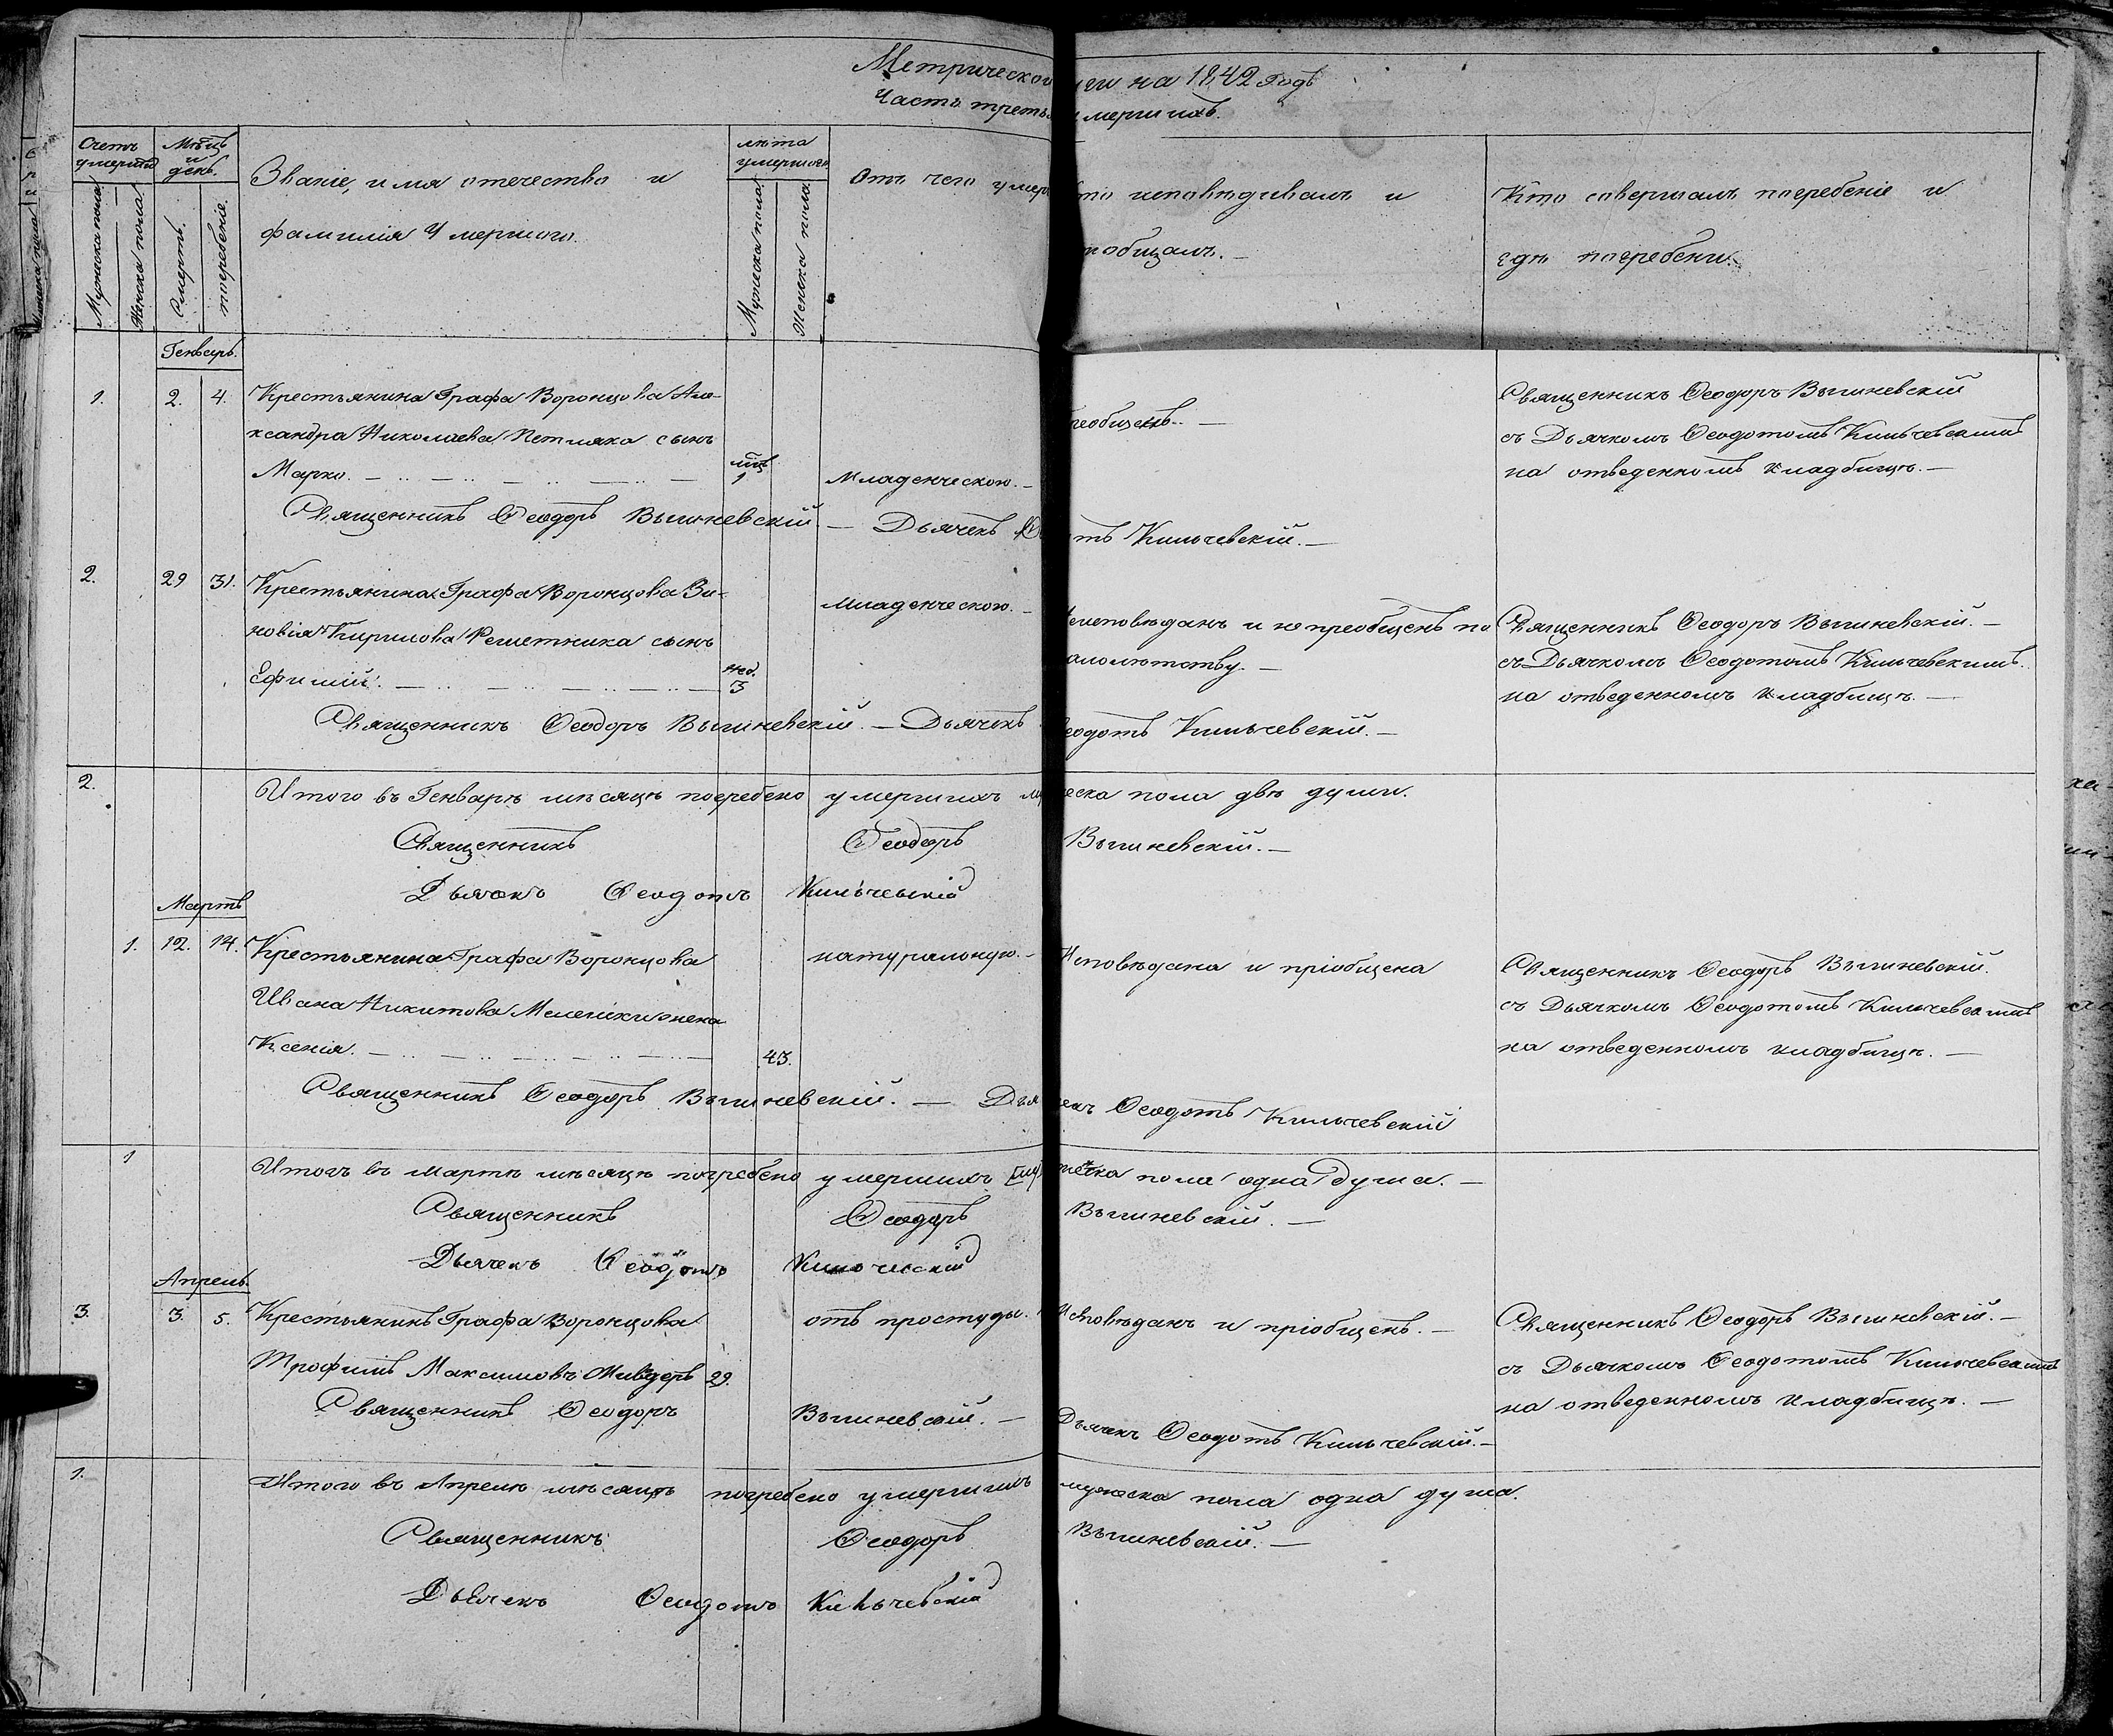 Метрической ги на 1842 Годъ
Часть треть мершихъ.
Счетъ умерш
Мѣсяцъ и день.
Званіе, имя отечество и фамилія Умершаго.
лѣта умершаго
Отъ чего умер
то исповѣдивалъ и
общалъ.
Кто совершалъ погребеніе и
гдѣ погребены.
Мужеска пола
Женска пола
Смерть.
погребеніе.
Мужеска пола
Женска пола
Генварь.
1. 2. 4. Крестьянина Графа Воронцова Але-
ксандра Николаева Петляка сынъ
Марко. 1 Младенческою.
общенъ.
Священникъ Ѳеодоръ Вышневскій
съ Дьячкомъ Ѳеодотомъ Кильчевскимъ
на отведенномъ кладбищѣ.
Священникъ Ѳеодоръ Вышневскій — Дьячекъ Ѳ тъ Кильчевскій.
2. 29 31. Крестьянина Графа Воронцова Зи-
новія Кирилова Решетника сынъ
Ефимій. нед. 3 младенческою.
еисповѣданъ и не преобщенъ по
алолѣтству.
Священникъ Ѳеодоръ Вышневскій.
съ Дьячкомъ Ѳеодотомъ Кильчевскимъ.
на отведенномъ кладбищѣ.
Священникъ Ѳеодоръ Вышневскій. — Дьячекъ еодотъ Кильчевскій.
2. Итого въ Генварѣ мѣсяцѣ погребено умершихъ му еска пола двѣ души.
Священникъ Ѳеодоръ Вышневскій.
Дьячекъ Ѳеодотъ Кильчевскій
Мартъ
1. 12. 14. Крестьянина Графа Воронцова
Ивана Никитова жена
Ксенія. 43. натуральною.
Исповѣдана и пріобщена
Священникъ Ѳеодоръ Вышневскій.
съ Дьячкомъ Ѳеодотомъ Кильчевскимъ
на отведенномъ кладбищѣ.
Священникъ Ѳеодоръ Вышневскій. — Дья екъ Ѳеодотъ Кильчевскій
1 Итогъ въ мартѣ мѣсяцѣ погребено умершихъ пола одна душа.
Священникъ Ѳеодоръ Вышневскій.
Дьячекъ Ѳеодотъ Кильчевскій
Апрель.
3. 3. 5. Крестьянинъ Графа Воронцова
Трофимъ Максимовъ 29. отъ простуды.
Исповѣданъ и пріобщенъ.
Священникъ Ѳеодоръ Вышневскій.
съ Дьячкомъ Ѳеодотомъ Кильчевскимъ
на отведенномъ кладбищѣ.
Священникъ Ѳеодоръ Вышневскій. — Дьячекъ Ѳеодотъ Кильчевскій.
1. Итого въ Апрелѣ мѣсяцѣ погребено умершихъ мужеска пола одна душа.
Священникъ Ѳеодоръ Вышневскій.
Дьячекъ Ѳеодотъ Кильчевскій